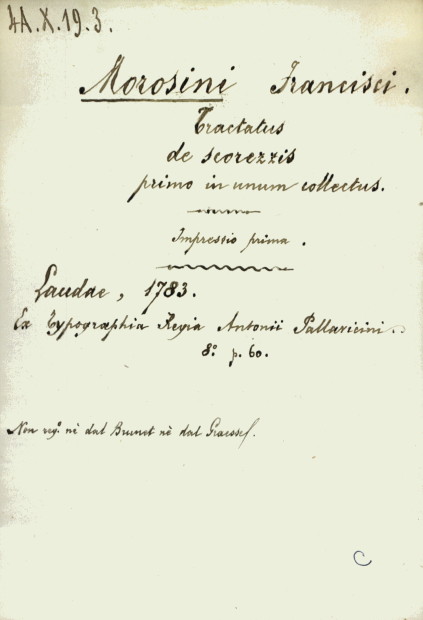 4A.X.19.3.
Morosini Francisci.
Tractatus
de scorezzis
primo in unum collectus.
Impressio prima.
Laudae, 1783.
Ex Typographia Regia Antonii Pallavicini.
8.° p. 60.
Non reg.° nè dal Brunet nè dal Graesse.
C